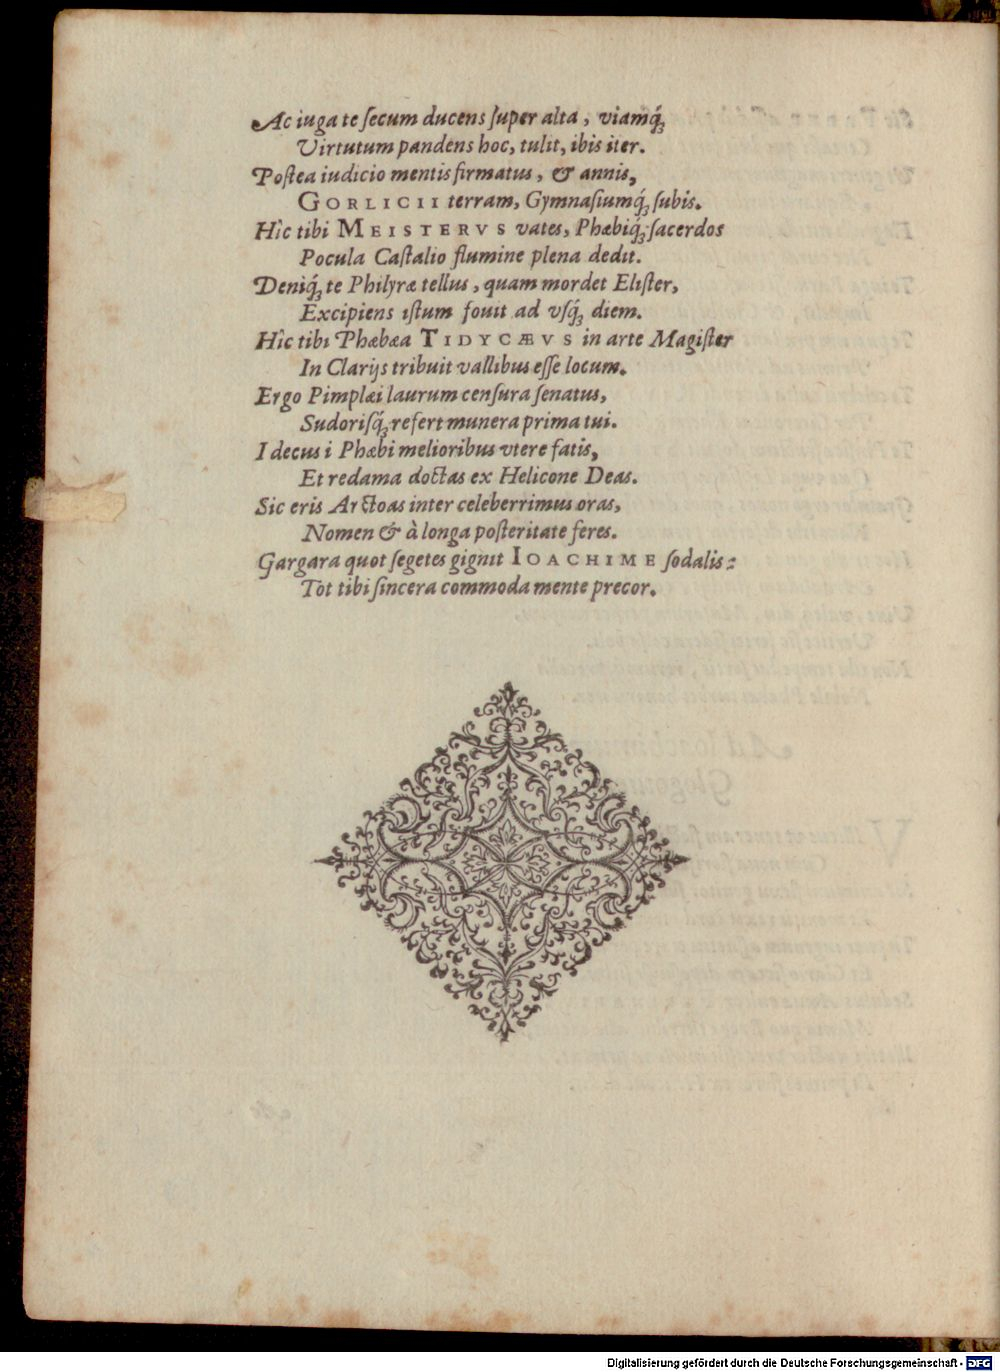 Ac iuga te ſecum ducens ſuper alta, viamq́;
Virtutum pandens hoc, tulit, ibis iter.
Poſtea iudicio mentis firmatus, & annis,
GORLICII terram, Gymnaſiumq́; ſubis.
Hìc tibi MEISTERVS vates, Phœbiq́; ſacerdos
Pocula Caſtalio flumine plena dedit.
Deniq́; te Philyræ tellus, quam mordet Eliſter,
Excipiens iſtum fouit ad vſq́; diem.
Hìc tibi Phœbæa TIDYCÆVS in arte Magiſter
In Clarijs tribuit vallibus eſſe locum.
Ergo Pimplæi laurum cenſura ſenatus,
Sudoriſq́; refert munera prima tui.
I decus i Phœbi melioribus vtere fatis,
Et redama doctas ex Helicone Deas.
Sic eris Arctoas inter celeberrimus oras,
Nomen & à longa poſteritate feres.
Gargara quot ſegetes gignit IOACHIME ſodalis:
Tot tibi ſincera commoda mente precor.
Digitalisierung gefördert durch die Deutsche Forschungsgemeinschaft - DFG